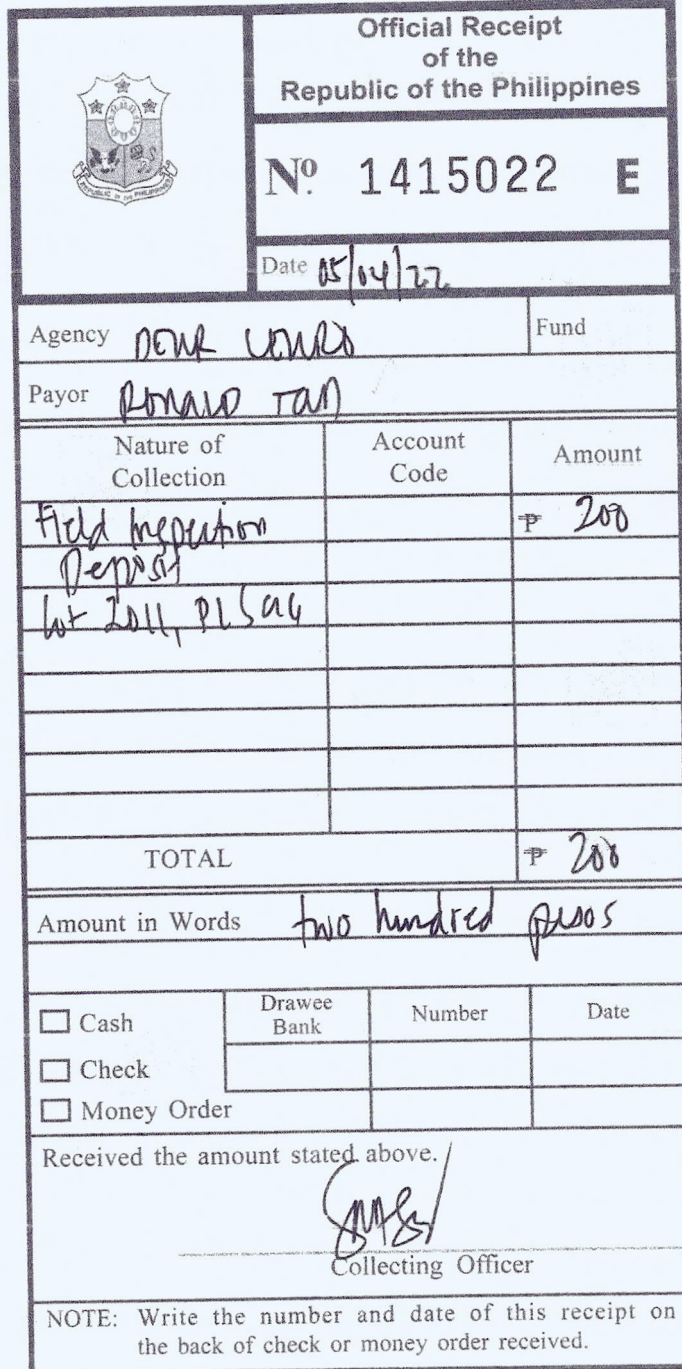 Official Receipt
of the
Republic of the Philippines
REPUBLIC OF THE PHILIPPINES
Nº 1415022 E
Date 05/04/22
Agency DENR
Fund
Payor RONALD TAN
Nature of Collection Account Code Amount
Field Inspection ₱ 200
Deposit
Lot 2011, PLS
TOTAL ₱ 200
Amount in Words two hundred pesos
Cash Drawee Bank Number Date
Check
Money Order
Received the amount stated above.
Collecting Officer
NOTE: Write the number and date of this receipt on
the back of check or money order received.